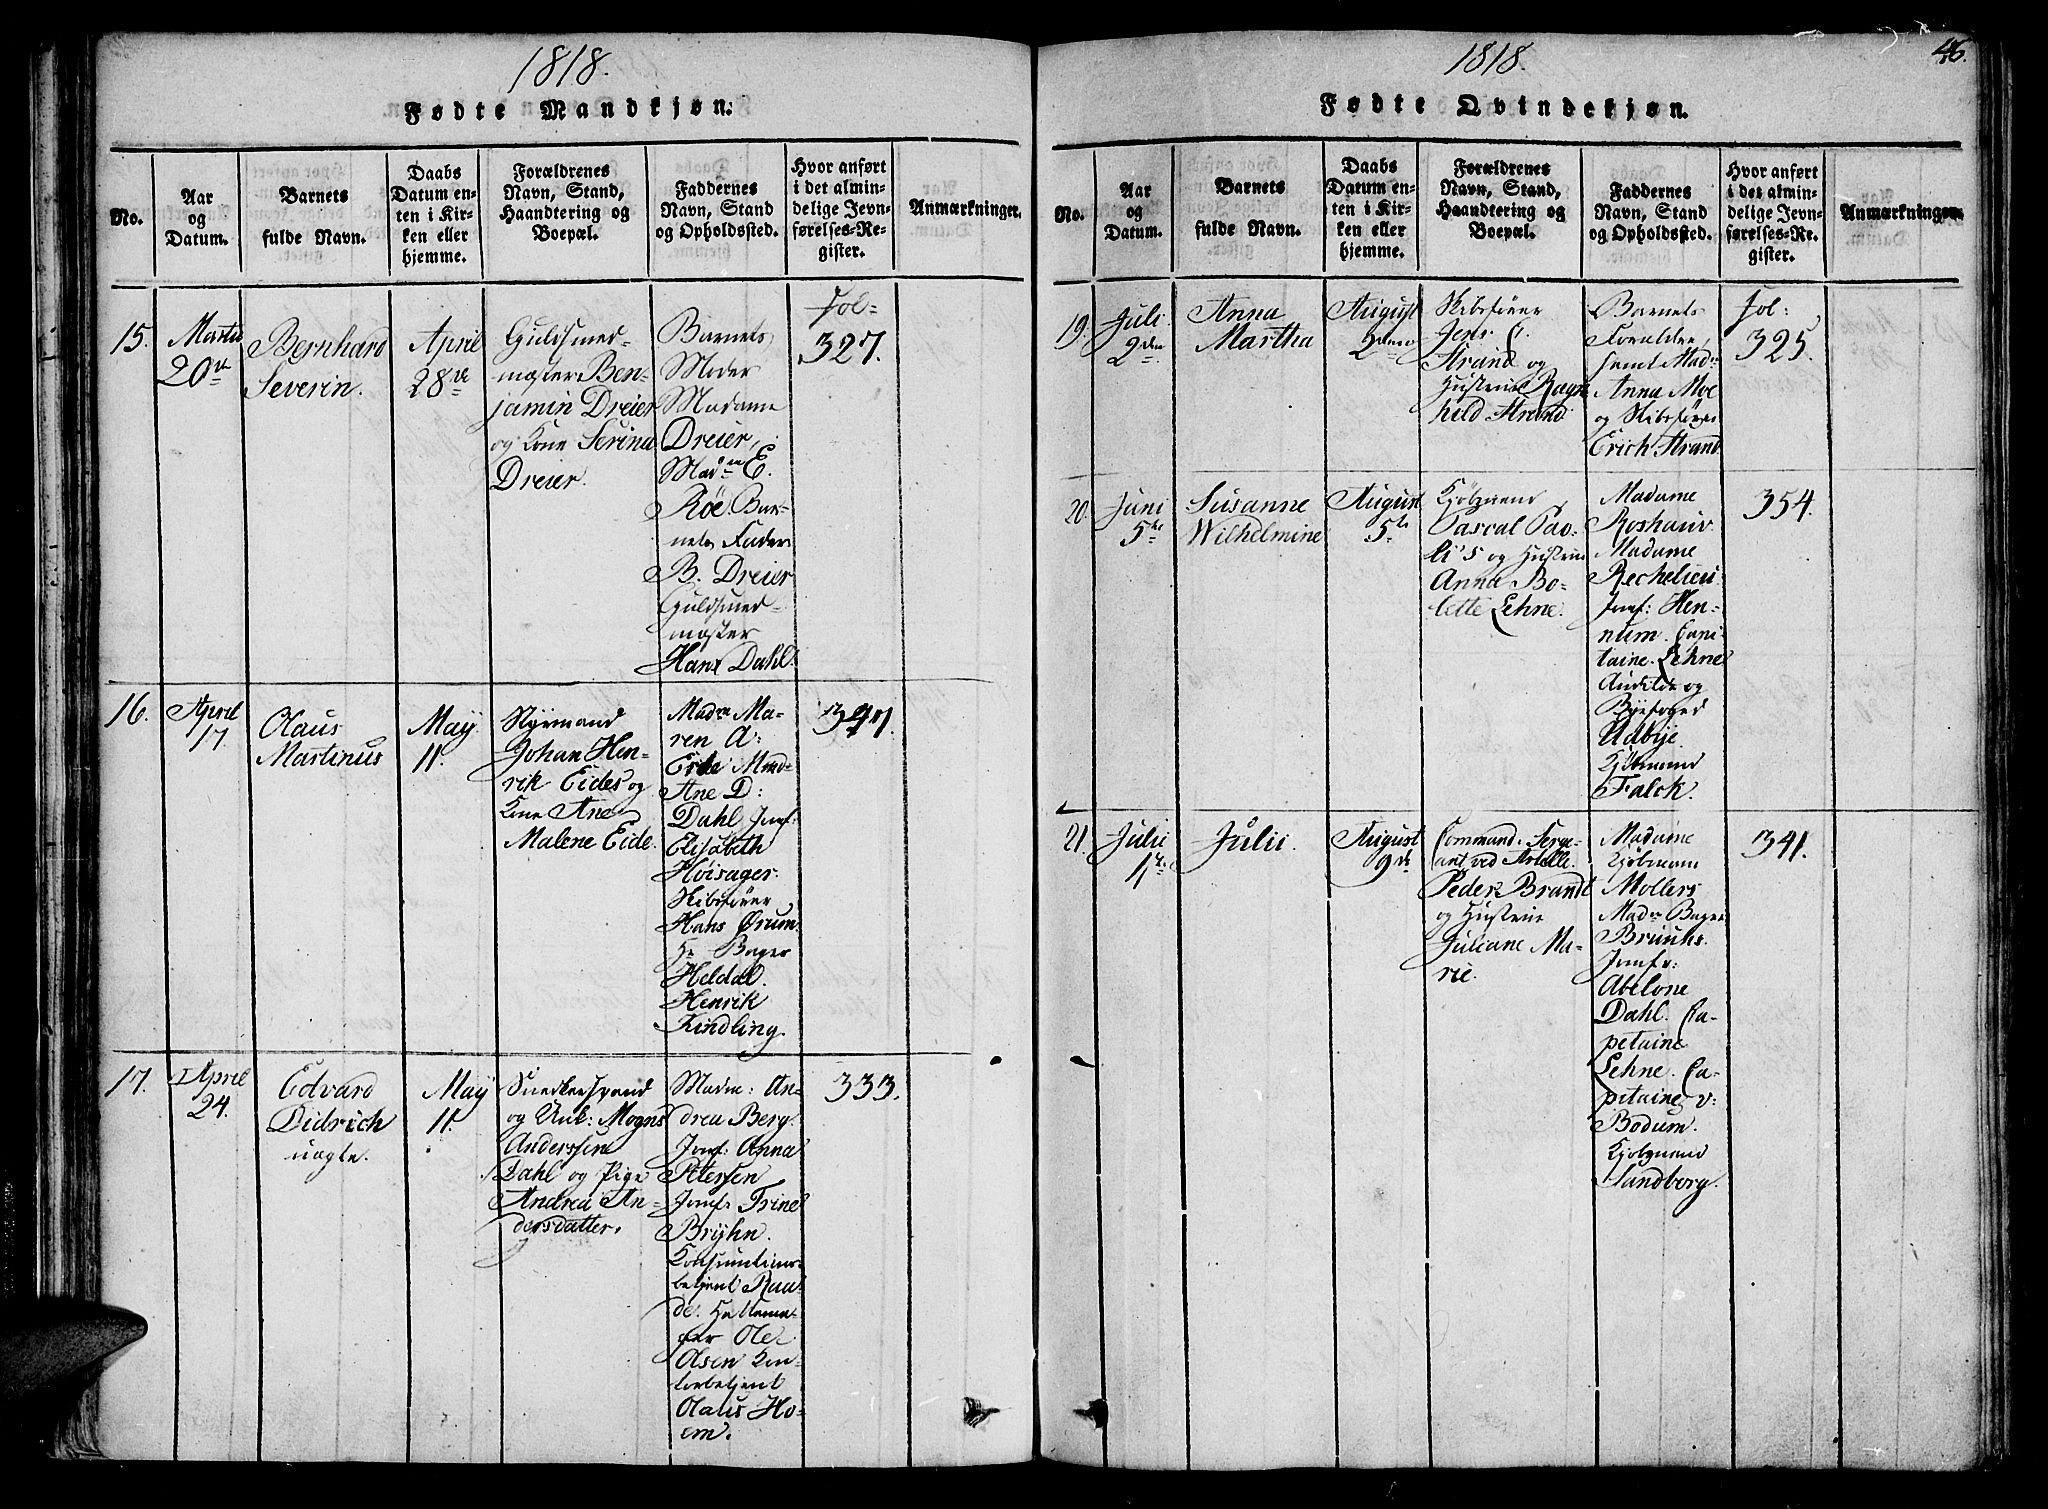 1818.
Fødte Mandkjøn.
No.
Aar
og
Datum.
Barnets
fulde Navn.
Daabs
Datum en-
ten i Kir-
ken eller
hjemme.
Forældrenes
Navn, Stand,
Haandtering og
Boepæl.
Faddernes
Navn, Stand
og Opholdssted.
Hvor anført
i det almin-
delige Jevn-
førelses-Re-
gister.
Anmærkninger.
15.
Martii
20de
Bernhard
Severin.
April
28de
Guldsmed-
mæster Ben-
jamin Dreier
og Kone Serina
Dreier.
Barnets
Moder
Madame
Dreier,
Madme E.
Röe. Bar-
nets Fader
B. Dreier
Guldsmed-
mæster
Hans Dahl.
Fol-
327.
16.
April
17.
Olaus
Martinus
May
11.
Styrmand
Johan Hen-
rik Eides og
Kone Ane
Malene Eide.
Madme Ma-
ren A:
Eide Mad-
Ane D:
Dahl Jomf:
Elisabeth
Höisager.
Skibsfører
Hans Ørum.
Hr Bager
Heldal.
Henrik
Kindling.
17.
April
24.
Edvard
Didrich
uægte.
May
11.
Snedkersvend
og Unk: Mogns
Anderssen
Dahl og Pige
Andrea An-
dersdatter.
Madm: An-
drea Berg.
Jomf: Anna
Petersen
Jomfr Trine
Brÿhn.
Consumtions-
betjent Raa-
de. Hattema-
ger Ole
Olsen Con-
torbetjent
Olaus Ho-
em.
333.
1818.
46.
Fødte Qvindekjøn.
No.
Aar
og
Datum.
Barnets
fulde Navn.
Daabs
Datum en-
ten i Kir-
ken eller
hjemme.
Forældrenes
Navn, Stand,
Haandtering og
Boepæl.
Faddernes
Navn, Stand
og Opholdssted.
Hvor anført
i det almin-
delige Jevn-
førelses-Re-
gister.
Anmærkninger.
19.
Juli
2den
Anna
Martha
August
2den
Skibsfører
Jens C.
Strand og
Hustrue Ragn-
hild Strand
Barnets
Forældre,
samt Madme
Anna Moe
og Skibsfører
Erich Strand
Fol:
325.
20.
Juni
5te
Susanne
Wilhelmine
August
5te
Kjøbmand
Pascal Pao-
li's og Hustrue
Anna Bo-
lette Lehne.
Madame
Roshauv.
Madame
Rechelieu
Jomf: Hen-
num. Capi-
taine. Lehne
og
Byefoged
Udbye.
Kjøbmand
Falck.
354.
21.
Julii
1te
Julii.
August
9de
Command: Serge-
ant ved Artille.
Peder Brandt
og Hustrue
Juliane Ma-
rie.
Madame
Kjøbmand
Mollers
Madme Bager
Bruuhs.
Jomfr:
Abelone
Dahl. Ca-
petaine
Lehne. Ca-
pitaine v:
Bodum.
Kjøbmand
Sandborg.
341.